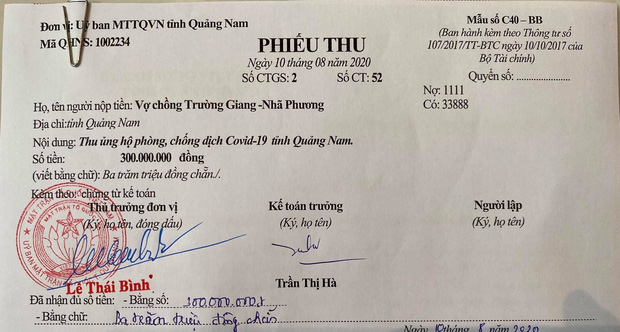 Đơn vị: Uỷ ban MTTQVN tỉnh Quảng Nam
Mã QHNS: 1002234
Mẫu số C40 – BB
(Ban hành kèm theo Thông tư số
107/2017/TT-BTC ngày 10/10/2017 của
Bộ Tài chính)
PHIẾU THU
Ngày 10 tháng 08 năm 2020
Số CTGS: 2 Số CT: 52
Quyển số:
Nợ: 1111
Có: 33888
Họ, tên người nộp tiền: Vợ chồng Trường Giang -Nhã Phương
Địa chỉ:tỉnh Quảng Nam
Nội dung: Thu ủng hộ phòng, chống dịch Covid-19 tỉnh Quảng Nam.
Số tiền: 300.000.000 đồng
(viết bằng chữ): Ba trăm triệu đồng chẵn./.
Kèm theo: chứng từ kế toán
Thủ trưởng đơn vị Kế toán trưởng Người lập
(Ký, họ tên, đóng dấu) (Ký, họ tên) (Ký, họ tên)
Lê Thái Bình Trần Thị Hà
Đã nhận đủ số tiền: - Bằng số: 300.000.000đ
- Bằng chữ: Ba trăm triệu đồng chẵn
Ngày 10 tháng 8 năm 2020